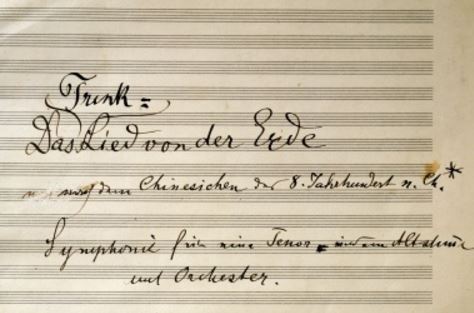 Trink=
Das Lied von der Erde
nach dem Chinesischen des 8. Jahrhundert n. Ch.*
Symphonie für eine Tenor= und eine Altstimme
und Orchester.